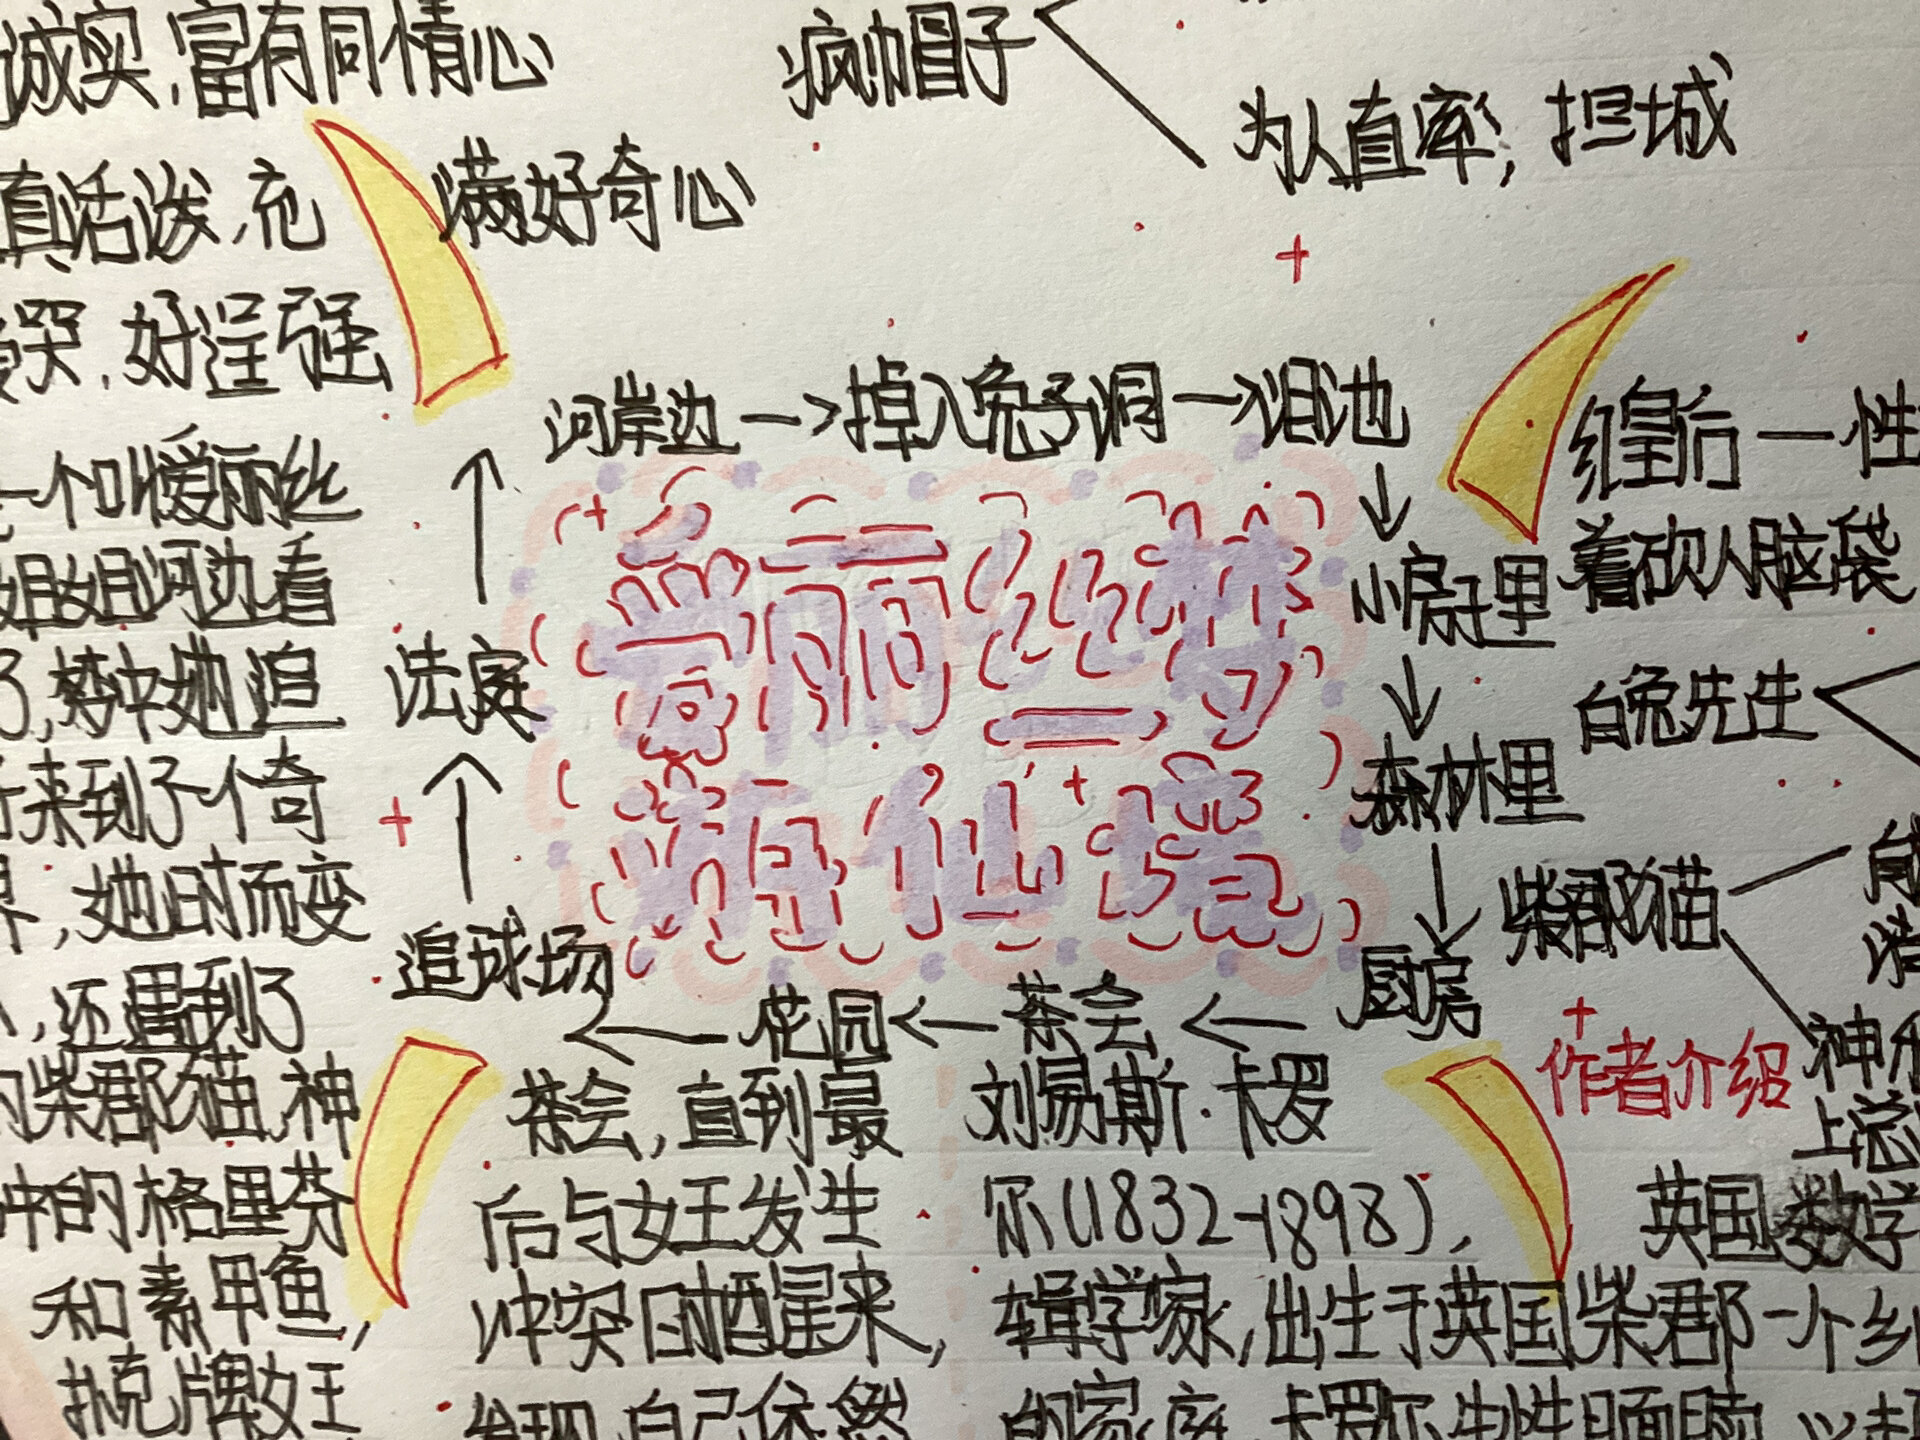 诚实,富有同情心
疯帽子
为人直率,担城
真活泼,充满好奇心
哭,好逞强
河岸边→掉入兔子洞→泪池
↓
小房子里
↓
森林里
↓
厨房
←茶会←花园←
追球场
↑
法庭
↑
爱丽丝梦
游仙境
红皇后一性
着砍人脑袋
白兔先生
柴郡猫
神
上总
一个叫爱丽丝
姐姐河边看
了,梦中她追
来到了一个奇
界,她时而变
,还遇到了
的柴郡猫,神
的格里芬
和素甲鱼,
扑克牌女王
茶会,直到最
后与女王发生
冲突时醒来,
发现自己依然
作者介绍
刘易斯·卡罗
尔(1832-1898),
英国数学
辑学家,出生于英国柴郡一个乡
的家庭,卡罗尔生性腼腆